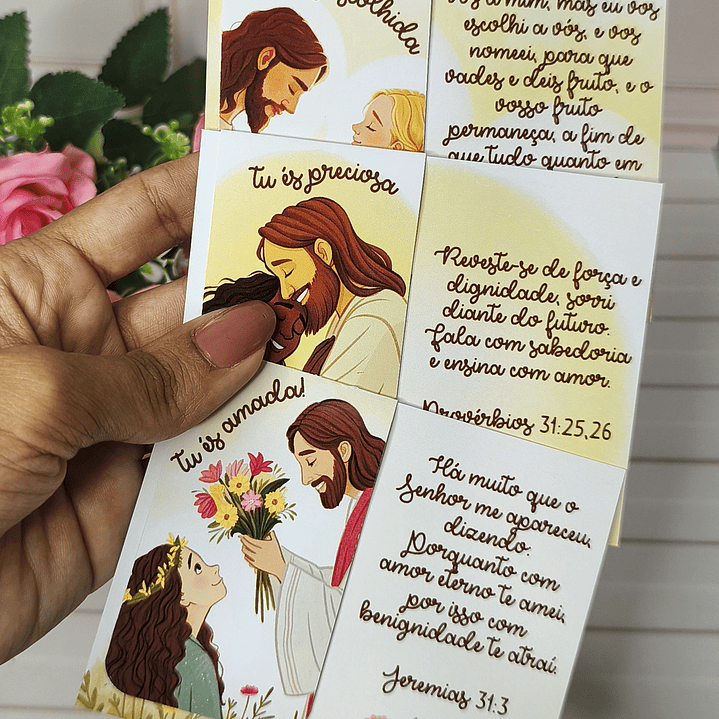 escolhida
vós a mim, mas eu vos
escolhi a vós, e vos
nomeei, para que
vades e deis fruto, e o
vosso fruto
permaneça, a fim de
que tudo quanto em
Tu és preciosa
Reveste-se de força e
dignidade, sorri
diante do futuro.
Fala com sabedoria
e ensina com amor.
Provérbios 31:25,26
Tu és amada!
Há muito que o
Senhor me apareceu,
dizendo:
Porquanto com
amor eterno te amei,
por isso com
benignidade te atraí.
Jeremias 31:3